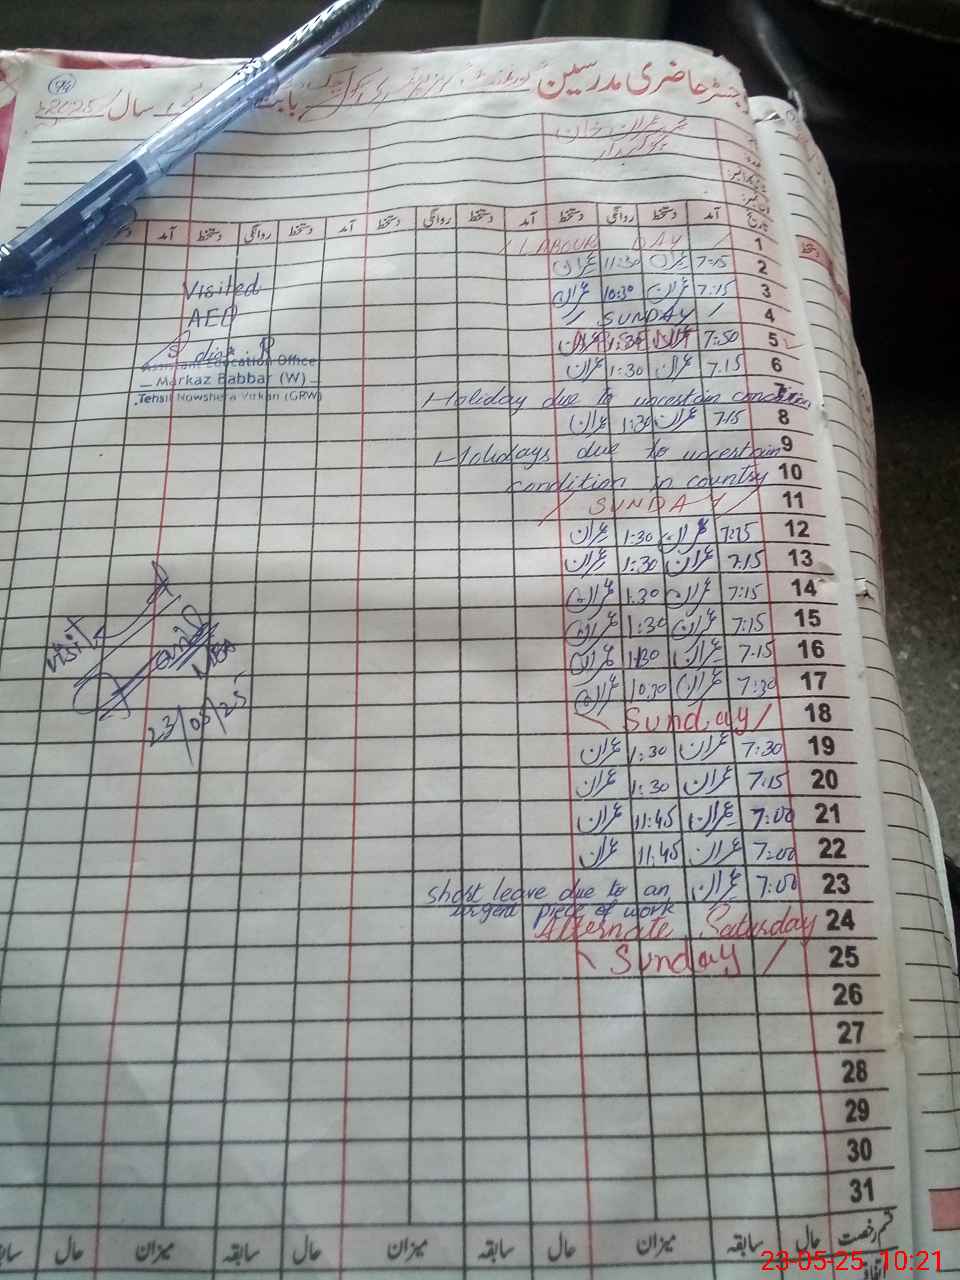 رجسٹر حاضری مدرسین
بابت
سال 2025
94
عمران خان
چوکیدار
تاریخ آمد دستخط روانگی دستخط آمد دستخط روانگی دستخط آمد دستخط روانگی دستخط آمد
1 / LABOUR DAY /
2 7:15 عمران 11:30 عمران
3 7:15 عمران 10:30 عمران
4 / SUNDAY /
5 7:50 عمران 1:30 عمران
6 7:15 عمران 1:30 عمران
7 Holiday due to uncertain condition
8 7:15 عمران 1:30 عمران
9 Holidays due to uncertain
10 condition in country
11 / SUNDAY /
12 7:15 عمران 1:30 عمران
13 7:15 عمران 1:30 عمران
14 7:15 عمران 1:30 عمران
15 7:15 عمران 1:30 عمران
16 7:15 عمران 1:30 عمران
17 7:30 عمران 10:30 عمران
18 Sunday /
19 7:30 عمران 1:30 عمران
20 7:15 عمران 1:30 عمران
21 7:00 عمران 11:45 عمران
22 7:00 عمران 11:45 عمران
23 7:00 عمران short leave due to an
urgent piece of work
24 Alternate Saturday
25 Sunday /
26
27
28
29
30
31
Visited
AEO
Assistant Education Office
Markaz Babbar (W)
Tehsil Nowshera Virkan (GRW)
visit
MEA
23/05/25
قسم رخصت حال سابقہ میزان حال سابقہ میزان حال سابقہ میزان حال
23-05-25 10:21